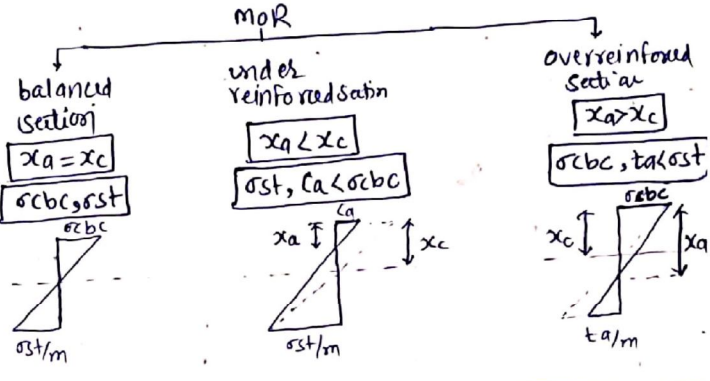 MOR
balanced
section
xa = xc
σcbc, σst
σcbc
σst/m
under
reinforced satin
xa < xc
σst, Ca < σcbc
Ca
xa
xc
σst/m
overreinforced
section
xa > xc
σcbc, ta < σst
σcbc
xc
xa
ta/m